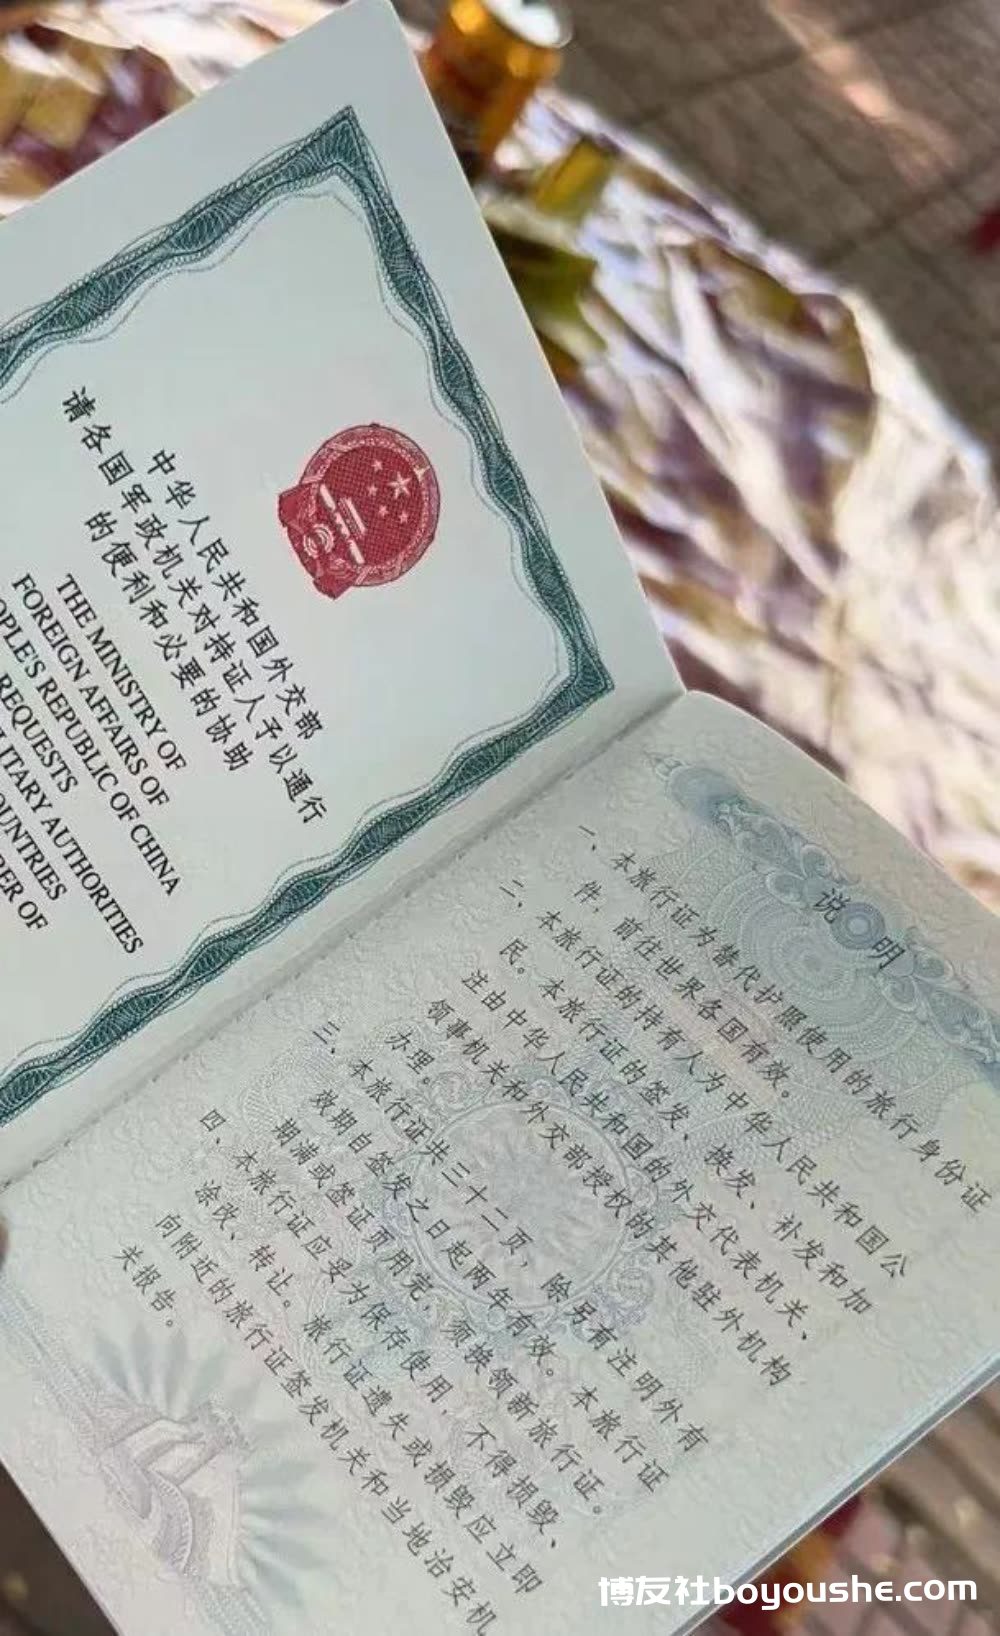 中华人民共和国外交部
请各国军政机关对持证人予以通行
的便利和必要的协助
THE MINISTRY OF
FOREIGN AFFAIRS OF
PEOPLE'S REPUBLIC OF CHINA
REQUESTS
MILITARY AUTHORITIES
COUNTRIES
OF
说明
一、本旅行证为替代护照使用的旅行身份证
件，前往世界各国有效。
二、本旅行证的持有人为中华人民共和国公
民。本旅行证的签发、换发、补发和加
注由中华人民共和国的外交代表机关、
领事机关和外交部授权的其他驻外机构
办理。
三、本旅行证共三十二页，除另有注明外有
效期自签发之日起两年有效。本旅行证
期满或签证页用完，须换领新旅行证。
四、本旅行证应妥为保存使用，不得损毁、
涂改、转让。旅行证遗失或损毁应立即
向附近的旅行证签发机关和当地治安机
关报告。
博友社boyoushe.com